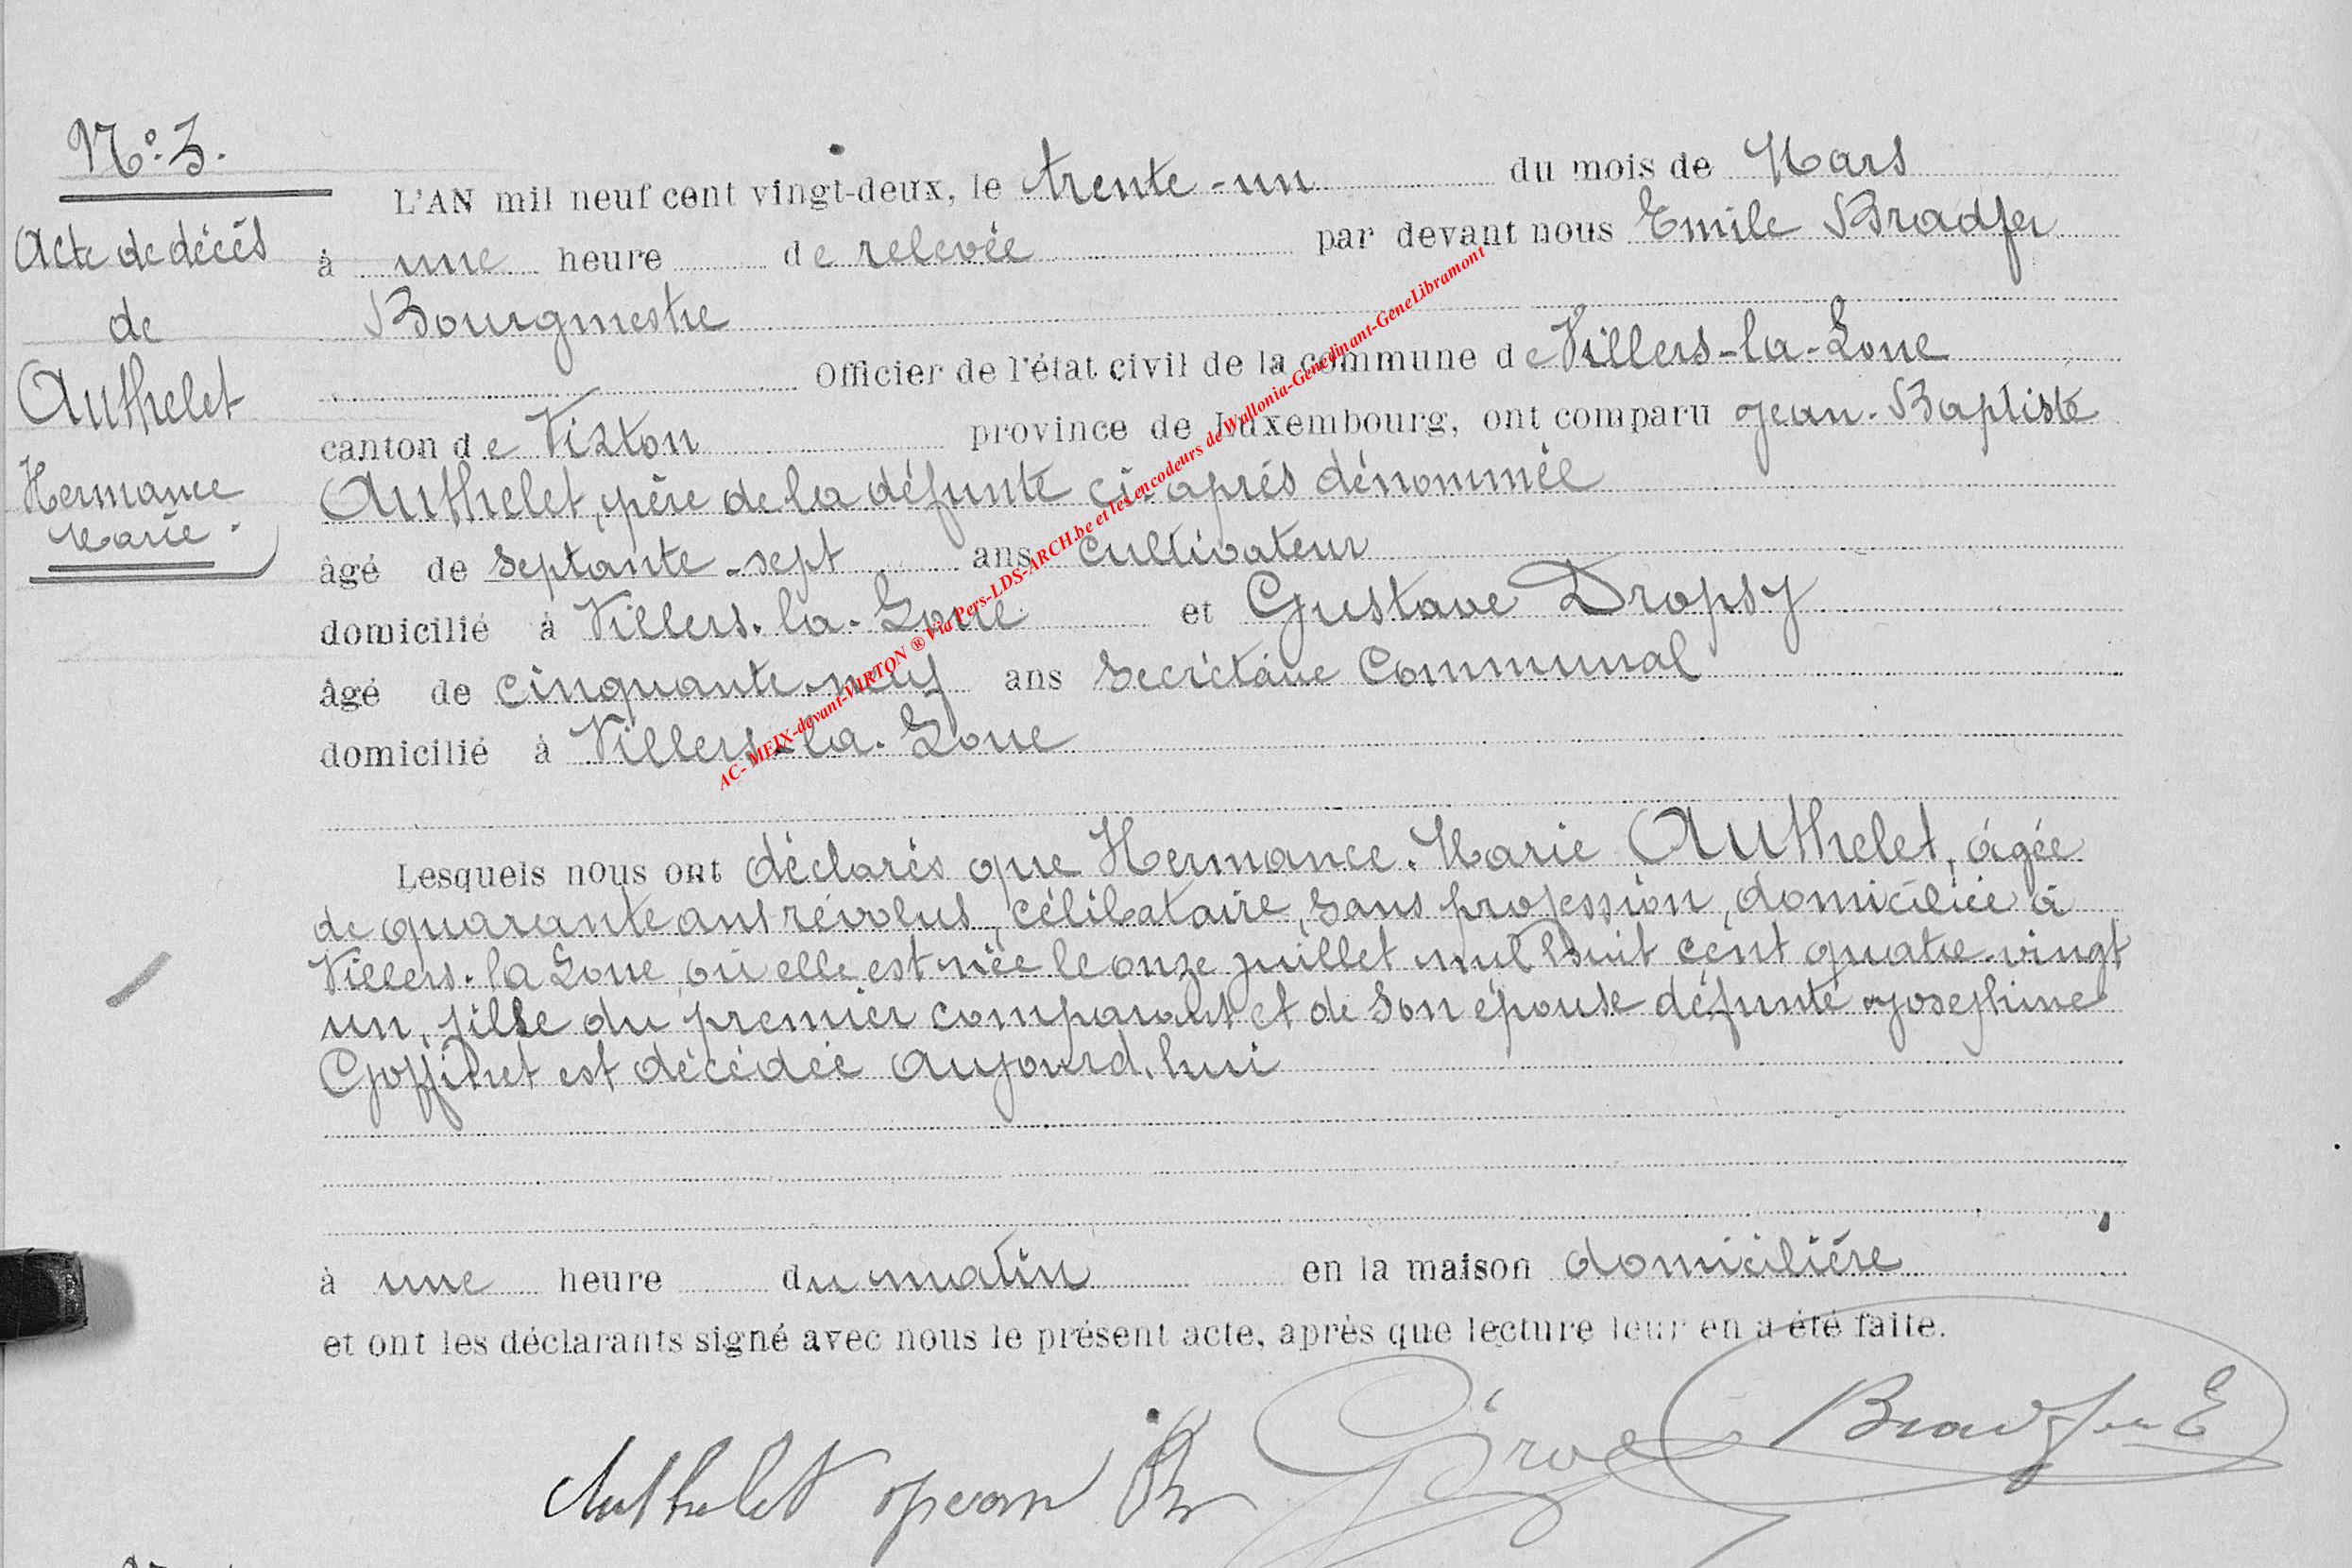 N° 3.
Acte de décès
de
Authelet
Hermance
Marie.
L'AN mil neuf cent vingt-deux, le trente-un du mois de Mars
à une heure de relevée par devant nous Emile Bradfer
Bourgmestre
Officier de l'état civil de la commune de Villers-la-Loue
canton de Virton province de Luxembourg, ont comparu Jean-Baptiste
Authelet, père de la défunte ci-après dénommée
âgé de septante-sept ans cultivateur
domicilié à Villers-la-Loue et Gustave Dropsy
âgé de cinquante-neuf ans Secrétaire Communal
domicilié à Villers-la-Loue
Lesquels nous ont déclarés que Hermance-Marie Authelet, âgée
de quarante ans révolus, célibataire, sans profession, domiciliée à
Villers-la Loue, où elle est née le onze juillet mil huit cent quatre-vingt
un, fille du premier comparant et de son épouse défunte Joséphine
Goffinet est décédée aujourd'hui
à une heure du matin en la maison domicilière
et ont les déclarants signé avec nous le présent acte, après que lecture leur en a été faite.
Authelet Jean Bte Bradfer E
AC- MEIX-devant-VIRTON ® Via Pers-LDS-ARCH.be et les encodeurs de Wallonia-Genedinant-GeneLibramont